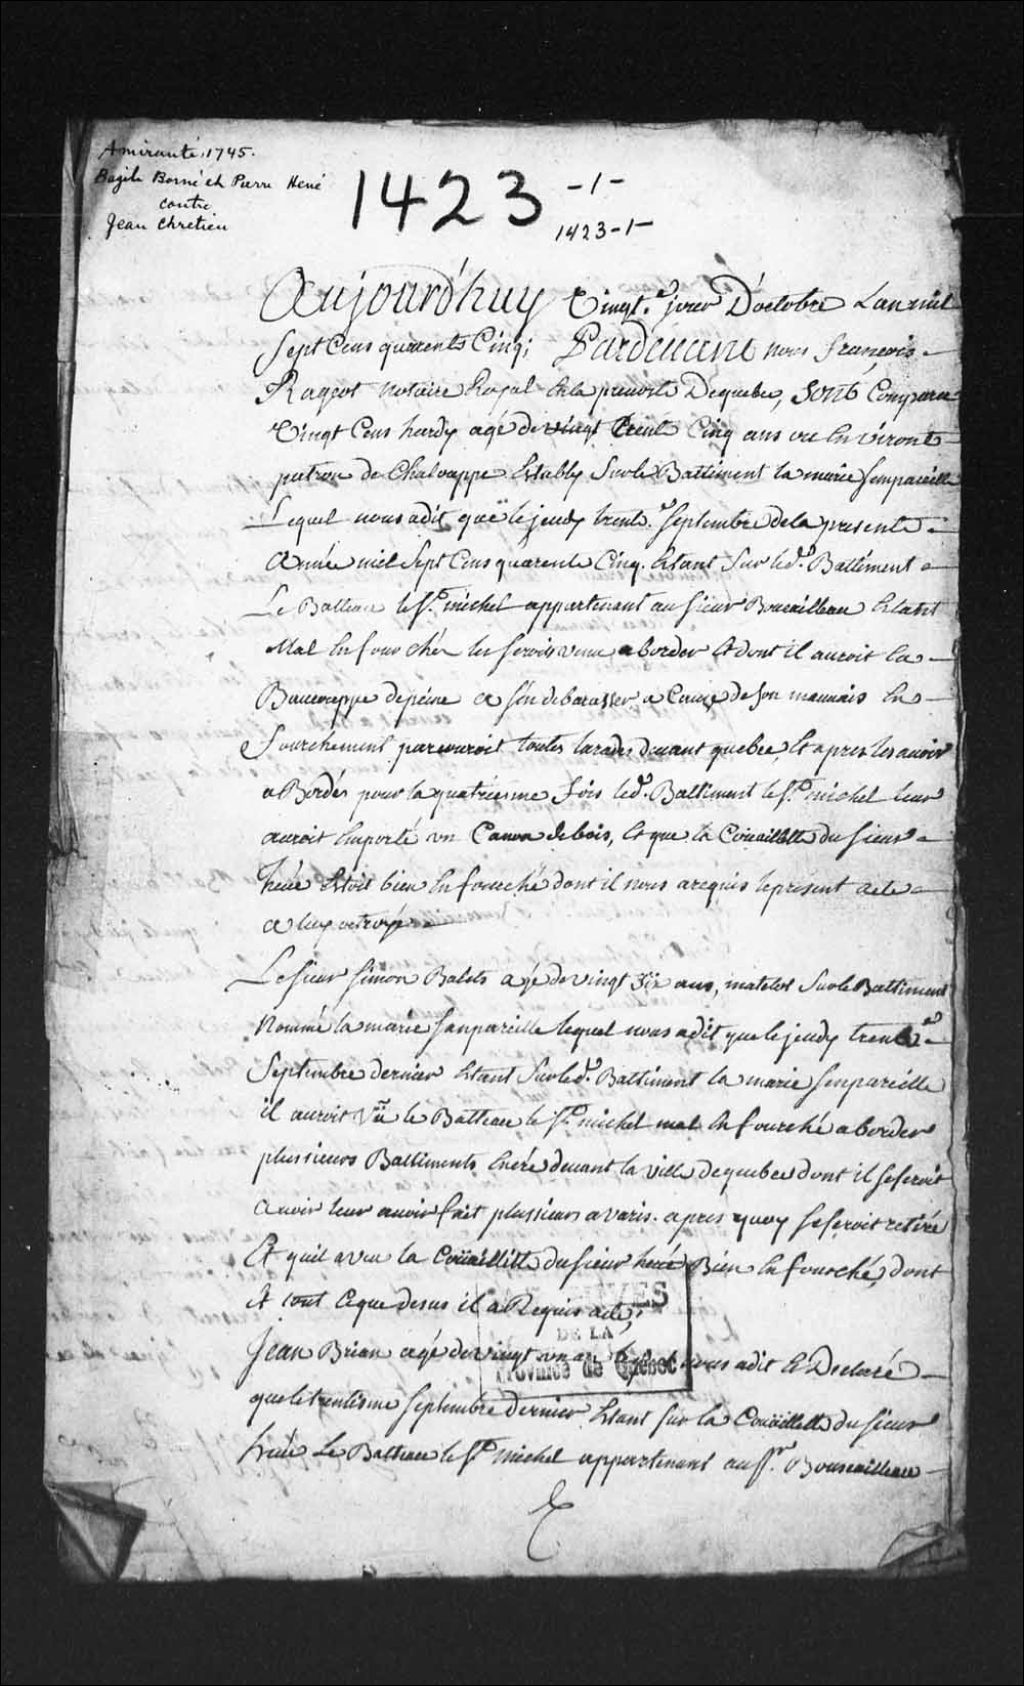 Amirauté, 1745.
Bazile Borné et Pierre Hené
contre
Jean Chretien
1423 -1-
1423-1-
Aujourd'huy Vingt.e jour D'octobre Lan mil
Sept Cens quarente Cinq; Pardevant nous françois
Rageot Notaire Royal En la prevosté Dequebec, Sont Comparu
Vingt Cens hardy agé de vingt trente Cinq ans ou Environt
patron de Chalouppe Estably Sur le Battiment la marie Senpareille
Lequel nous adit que le jeudy trente.e Septembre dela presente
Année mil Sept Cens quarente Cinq. Estant Sur led.t Battiment
Le Batteau le S.t michel appartenant au Sieur Boucailleau Estant
Mal Enfourché les Seroit venu aborder Et dont il auroit Eu
Baucouppe depeine a Sen debarasser a Cause de Son mauvais En
Fourchement parcouroit toutes larades devant quebec, Et apres les avoir
a Bordés pour la quatriesme fois led.t Battiment le S.t michel leur
auroit Emporté un Canoa de bois, Et que la Couaillette du Sieur
hené Estoit bien Enfourché dont il nous arequis leprésent acte
a luy octroyé
Le Sieur Simon Balets agé de vingt Six ans, matelot Sur le Battiment
Nommé la marie Sanpareille lequel nous adit que le jeudy trente
Septembre dernier Estant Sur led.t Battiment la marie Senpareille
il auroit Vû le Batteau le S.t michel mal Enfourché aborder
plussieurs Battiments Encré devant la ville dequebec dont il Seseroit
avoir leur avoir fait plussieurs avaris. apres quoy Seseroit retiré
Et quil aveu la Couaillette du Sieur hené Bien Enfourché, dont
Et tout Ceque desus il a Requis acte,
ARCHIVES
DE LA
Province de Québec
Jean Brian agé de vingt un an nous adit Et Declaré
que le trentisme Septembre dernier Estant Sur la Couaillette du Sieur
hené Le Batteau le S.t michel appartenant au S.r Boucailleau